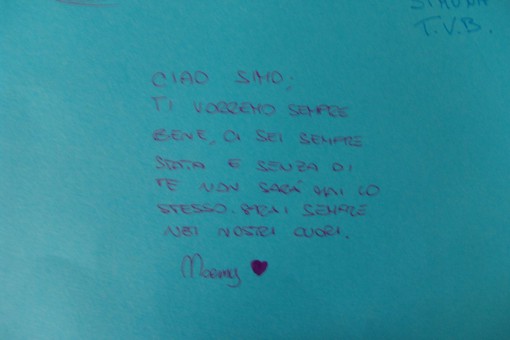 SIMONA
T.V.B.
CIAO SIMO,
TI VORREMO SEMPRE
BENE, CI SEI SEMPRE
STATA E SENZA DI
TE NON SARÀ MAI LO
STESSO. SARAI SEMPRE
NEI NOSTRI CUORI.
Noemy ♥